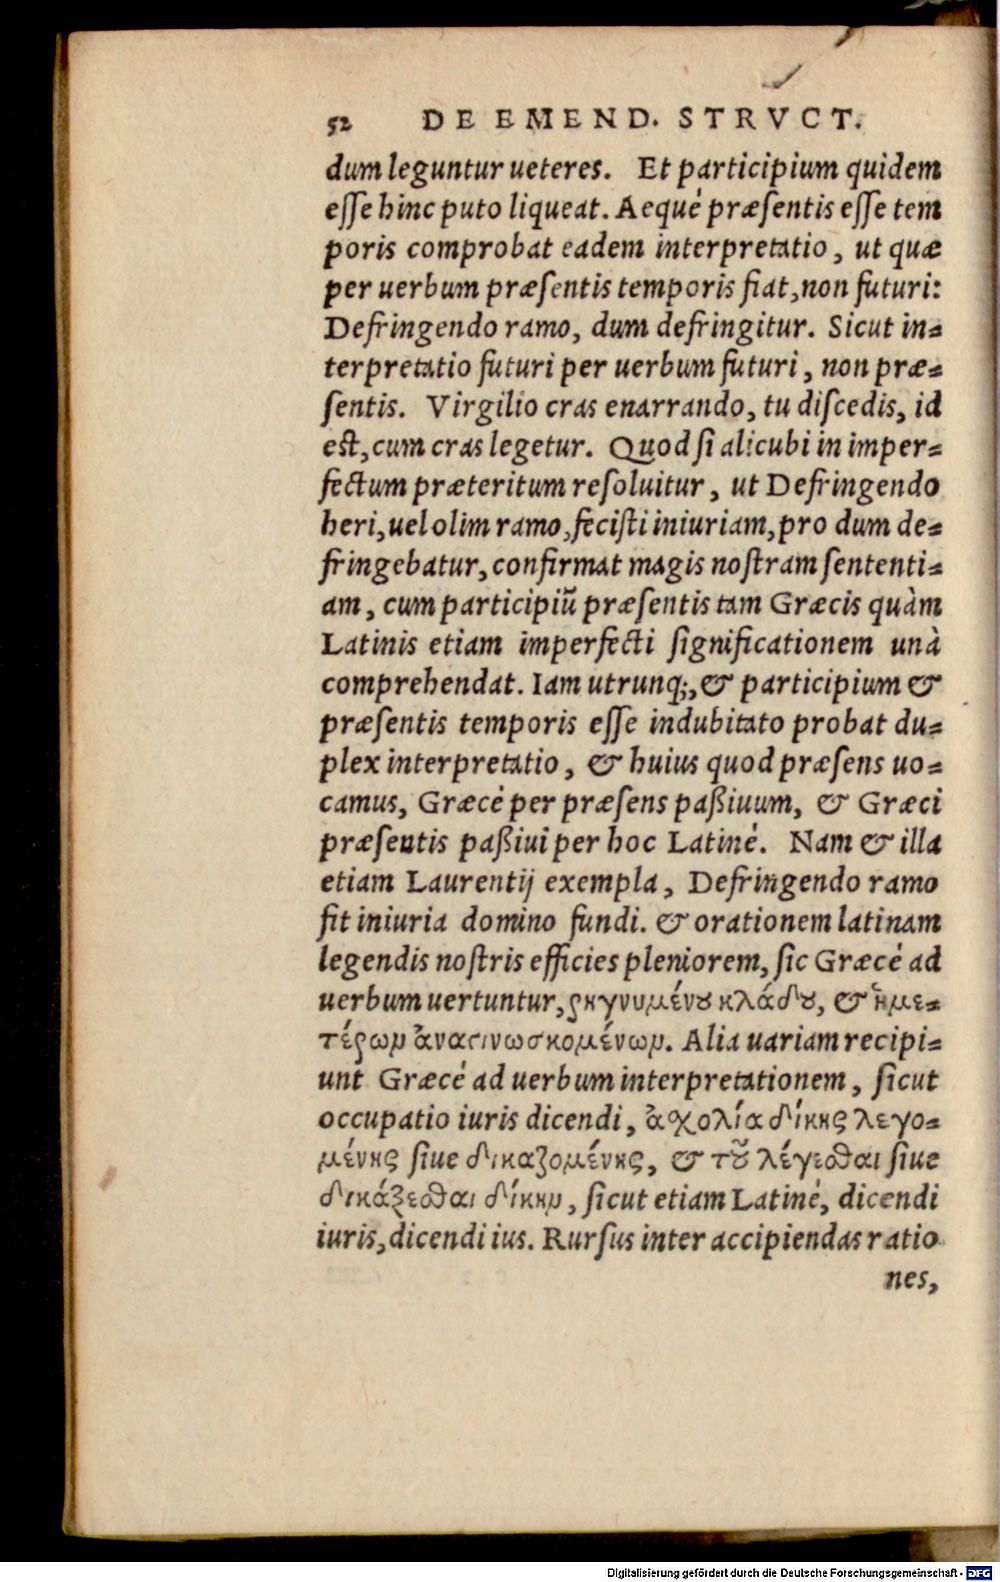 52 DE EMEND. STRVCT.
dum leguntur ueteres. Et participium quidem
esse hinc puto liqueat. Aequè præsentis esse tem
poris comprobat eadem interpretatio, ut quæ
per uerbum præsentis temporis fiat, non futuri:
Defringendo ramo, dum defringitur. Sicut in-
terpretatio futuri per uerbum futuri, non præ-
sentis. Virgilio cras enarrando, tu discedis, id
est, cum cras legetur. Quod si alicubi in imper-
fectum præteritum resoluitur, ut Defringendo
heri, uel olim ramo, fecisti iniuriam, pro dum de-
fringebatur, confirmat magis nostram sententi-
am, cum participiũ præsentis tam Græcis quàm
Latinis etiam imperfecti significationem unà
comprehendat. Iam utrunq;, & participium &
præsentis temporis esse indubitato probat du-
plex interpretatio, & huius quod præsens uo-
camus, Græcè per præsens paßiuum, & Græci
præsentis paßiui per hoc Latinè. Nam & illa
etiam Laurentij exempla, Defringendo ramo
fit iniuria domino fundi. & orationem latinam
legendis nostris efficies pleniorem, sic Græcè ad
uerbum uertuntur, ῥηγνυμένου κλάδου, & ἡμε-
τέρων ἀναγινωσκομένων. Alia uariam recipi-
unt Græcè ad uerbum interpretationem, sicut
occupatio iuris dicendi, ἀσχολία δίκης λεγο-
μένης siue δικαζομένης, & τοῦ λέγεσθαι siue
δικάζεσθαι δίκην, sicut etiam Latinè, dicendi
iuris, dicendi ius. Rursus inter accipiendas ratio
nes,
Digitalisierung gefördert durch die Deutsche Forschungsgemeinschaft - DFG